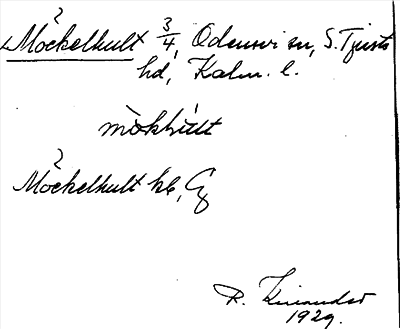 Möckelhult 3/4, Odensvi sn, S. Tjusts
hd, Kalm. l.
mökhult
Möckelhult
R. Kinander
1929.